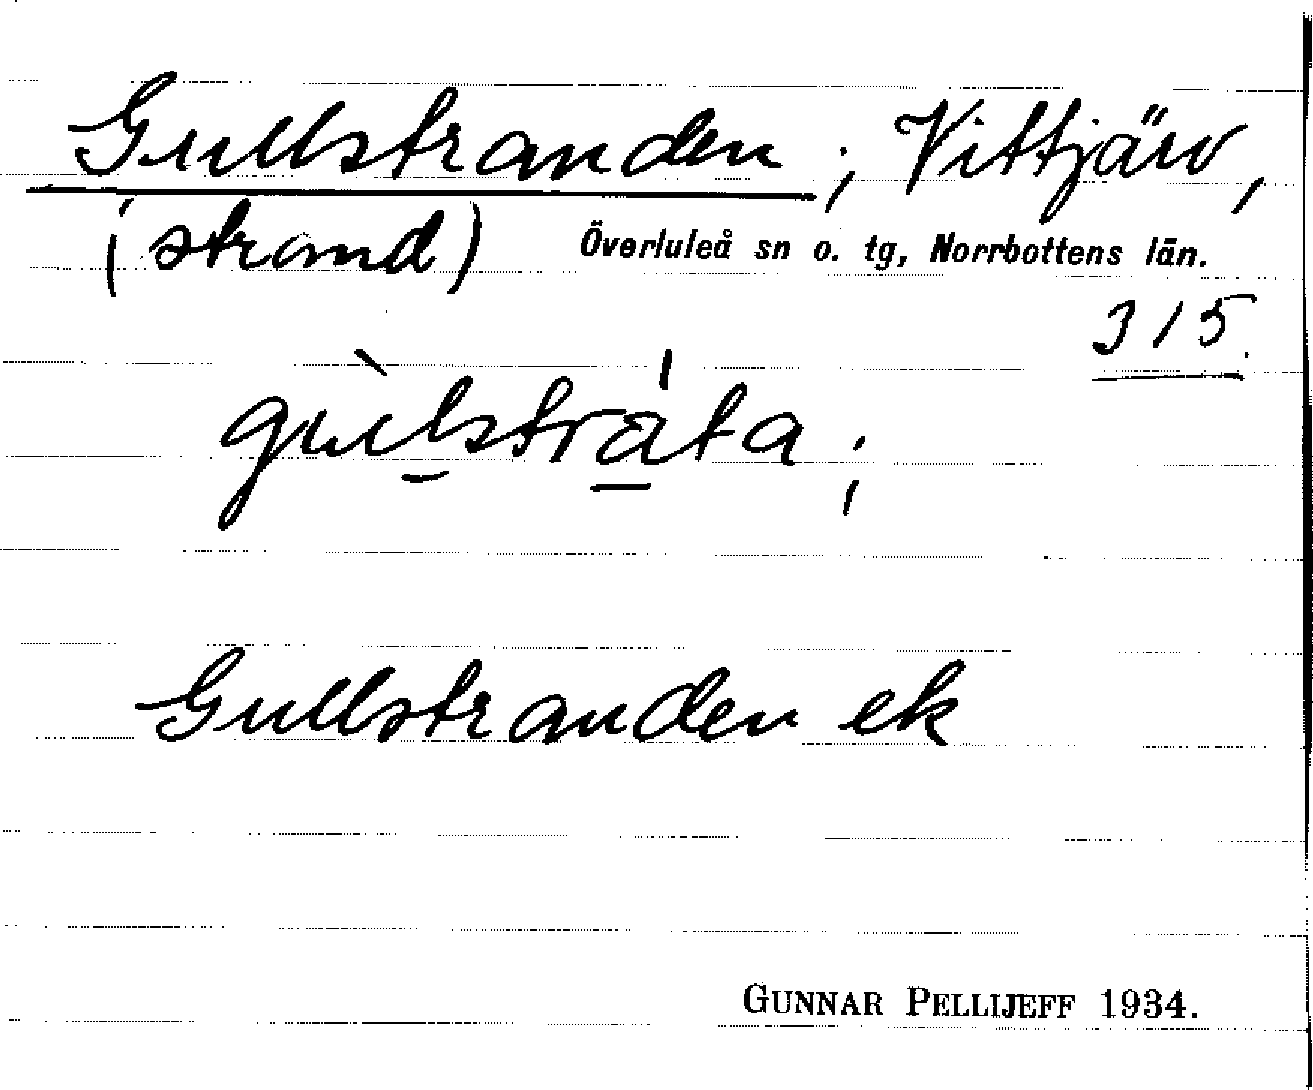 Gullstranden; Vittjärv,
(strand) Överluleå sn o. tg, Norrbottens län.
315.
gùl̲strá̲ta;
Gullstranden ek
GUNNAR PELLIJEFF 1934.